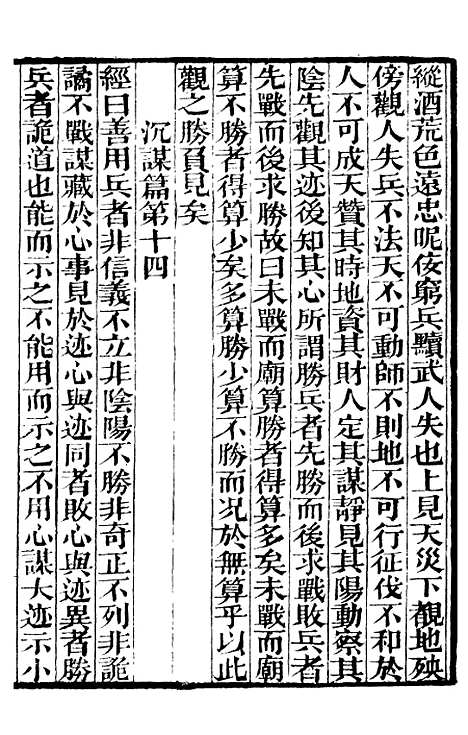 縱酒荒色遠忠昵佞窮兵黷武人失也上見天災下覩地殃
傍觀人失兵不法天不可動師不則地不可行征伐不和於
人不可成天贊其時地資其財人定其謀靜見其陽動察其
陰先觀其迹後知其心所謂勝兵者先勝而後求戰敗兵者
先戰而後求勝故曰未戰而廟算勝者得算多矣未戰而廟
算不勝者得算少矣多算勝少算不勝而况於無算乎以此
觀之勝負見矣
沉謀篇第十四
經曰善用兵者非信義不立非陰陽不勝非奇正不列非詭
譎不戰謀藏於心事見於迹心與迹同者敗心與迹異者勝
兵者詭道也能而示之不能用而示之不用心謀大迹示小